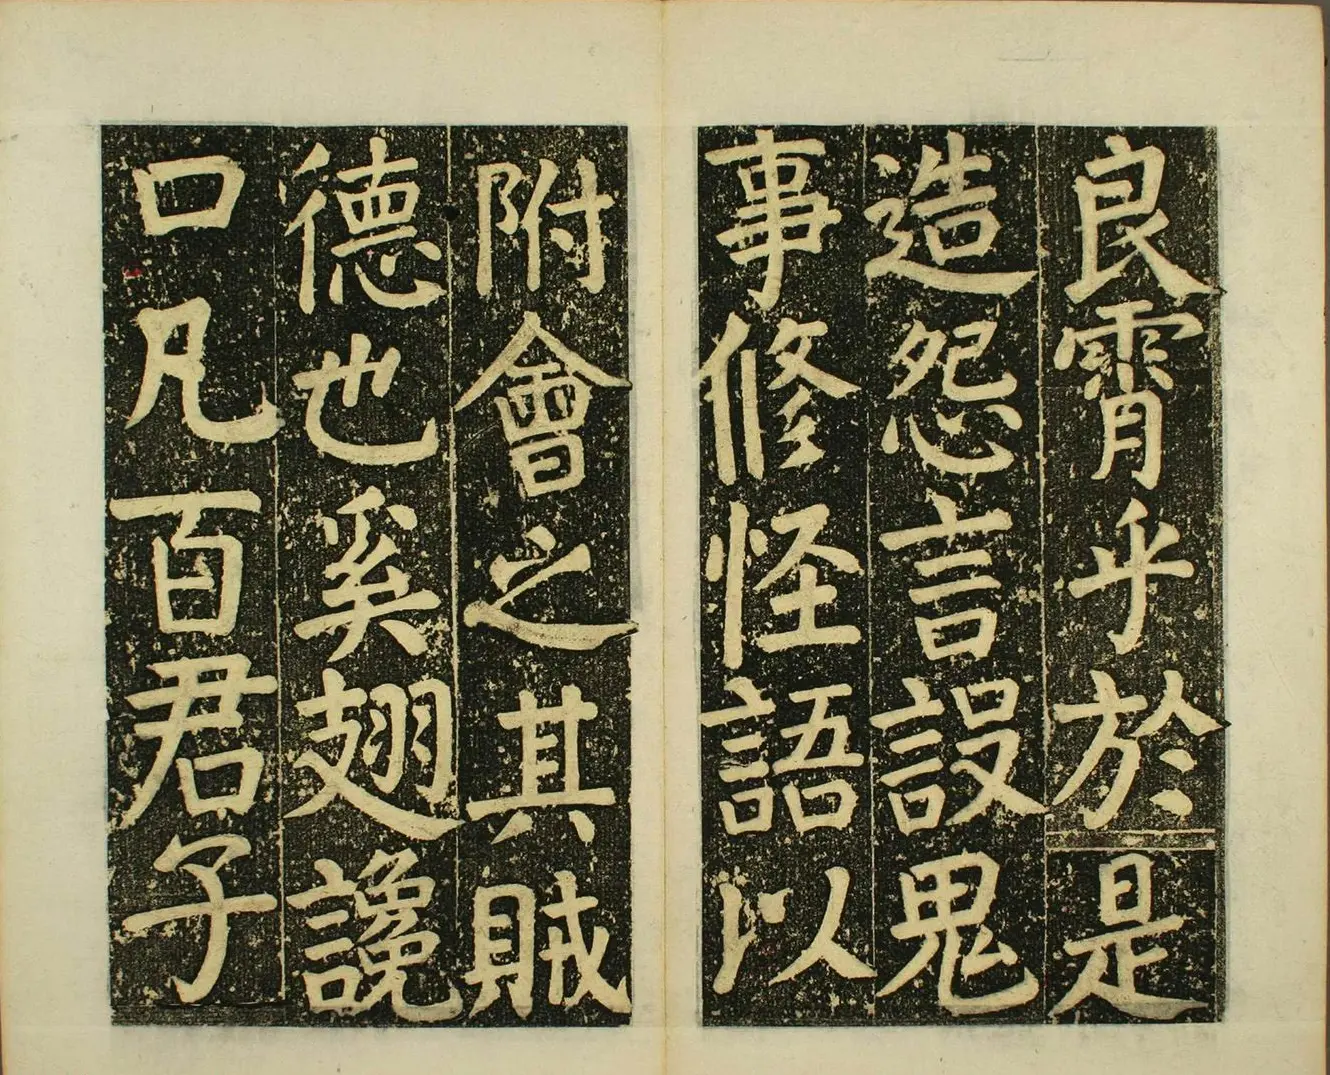 良霄乎於是
造怨言設鬼
事修怪語以
附會之其賊
德也奚翅讒
口凡百君子